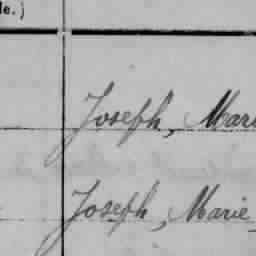 le.)
Joseph, Mari
Joseph, Marie